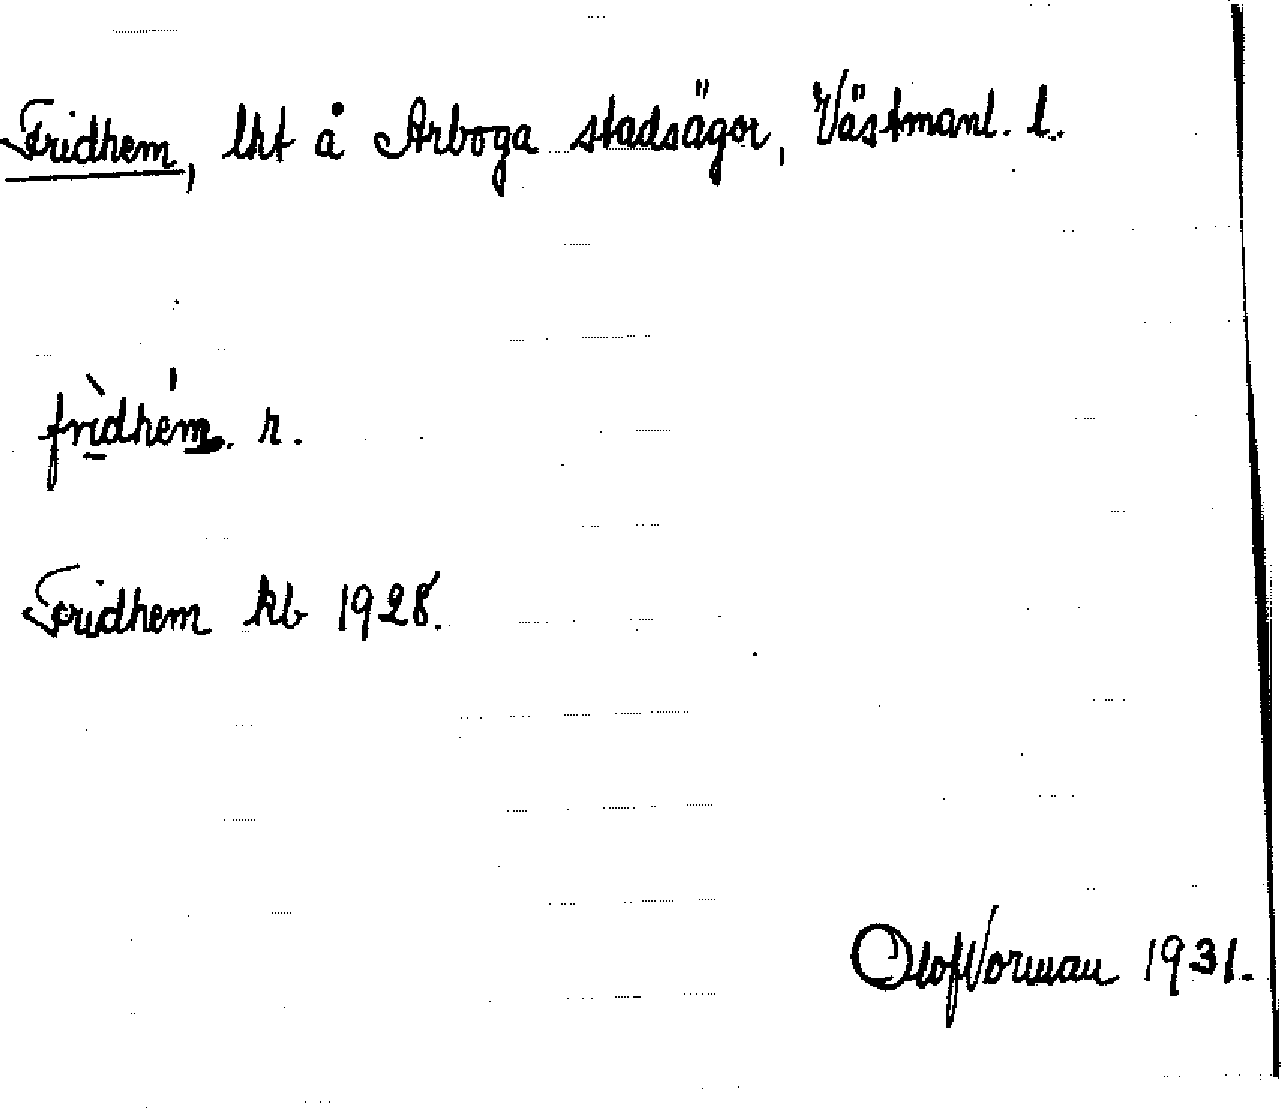 Fridhem, lht å Arboga stadsägor, Västmanl. l.
frìdhém. r.
Fridhem kb 1928.
Olof Norman 1931.